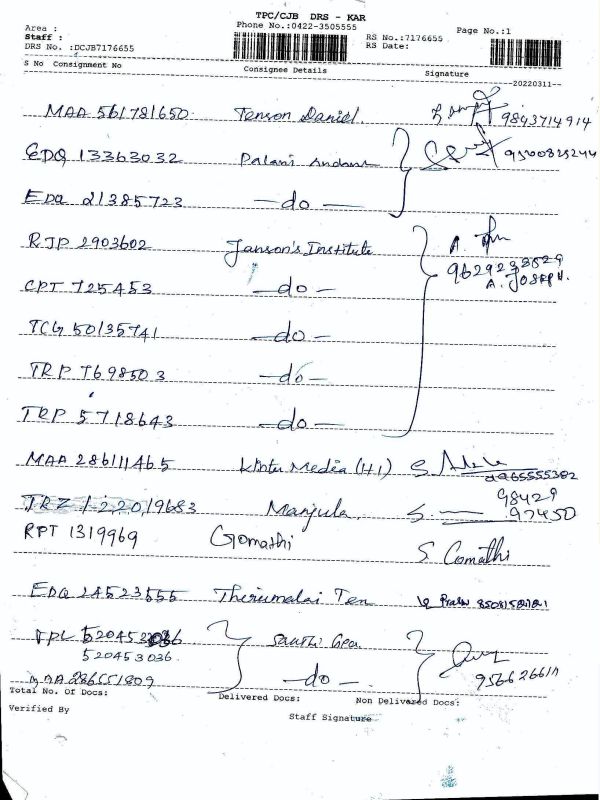 TPC/CJB DRS - KAR
Area : Phone No.:0422-3505555 RS No.:7176655 Page No.:1
Staff : RS Date:
DRS No. :DCJB7176655
S No Consignment No Consignee Details Signature
20220311
MAA 561781650 Tenson Daniel 9843714914
EDQ 13363032 Palani Andavar 9500825244
EDQ 21385723 -do-
RJP 2903602 Janson's Institute 9629233829
A. JOSEPH.
CPT 725453 -do-
TCG 50135741 -do-
TRP 7698503 -do-
TRP 5718643 -do-
MAA 286111465 Media (H1) S.
9965555382
Manjula 98429
97450
RPT 1319969 Gomathi S Gomathi
EDQ 24523555 Thirumalai Tex
520453036 Sakthi Gear
520453036.
MAA 286551809 -do-
Total No. Of Docs: Delivered Docs: Non Delivered Docs:
Verified By Staff Signature